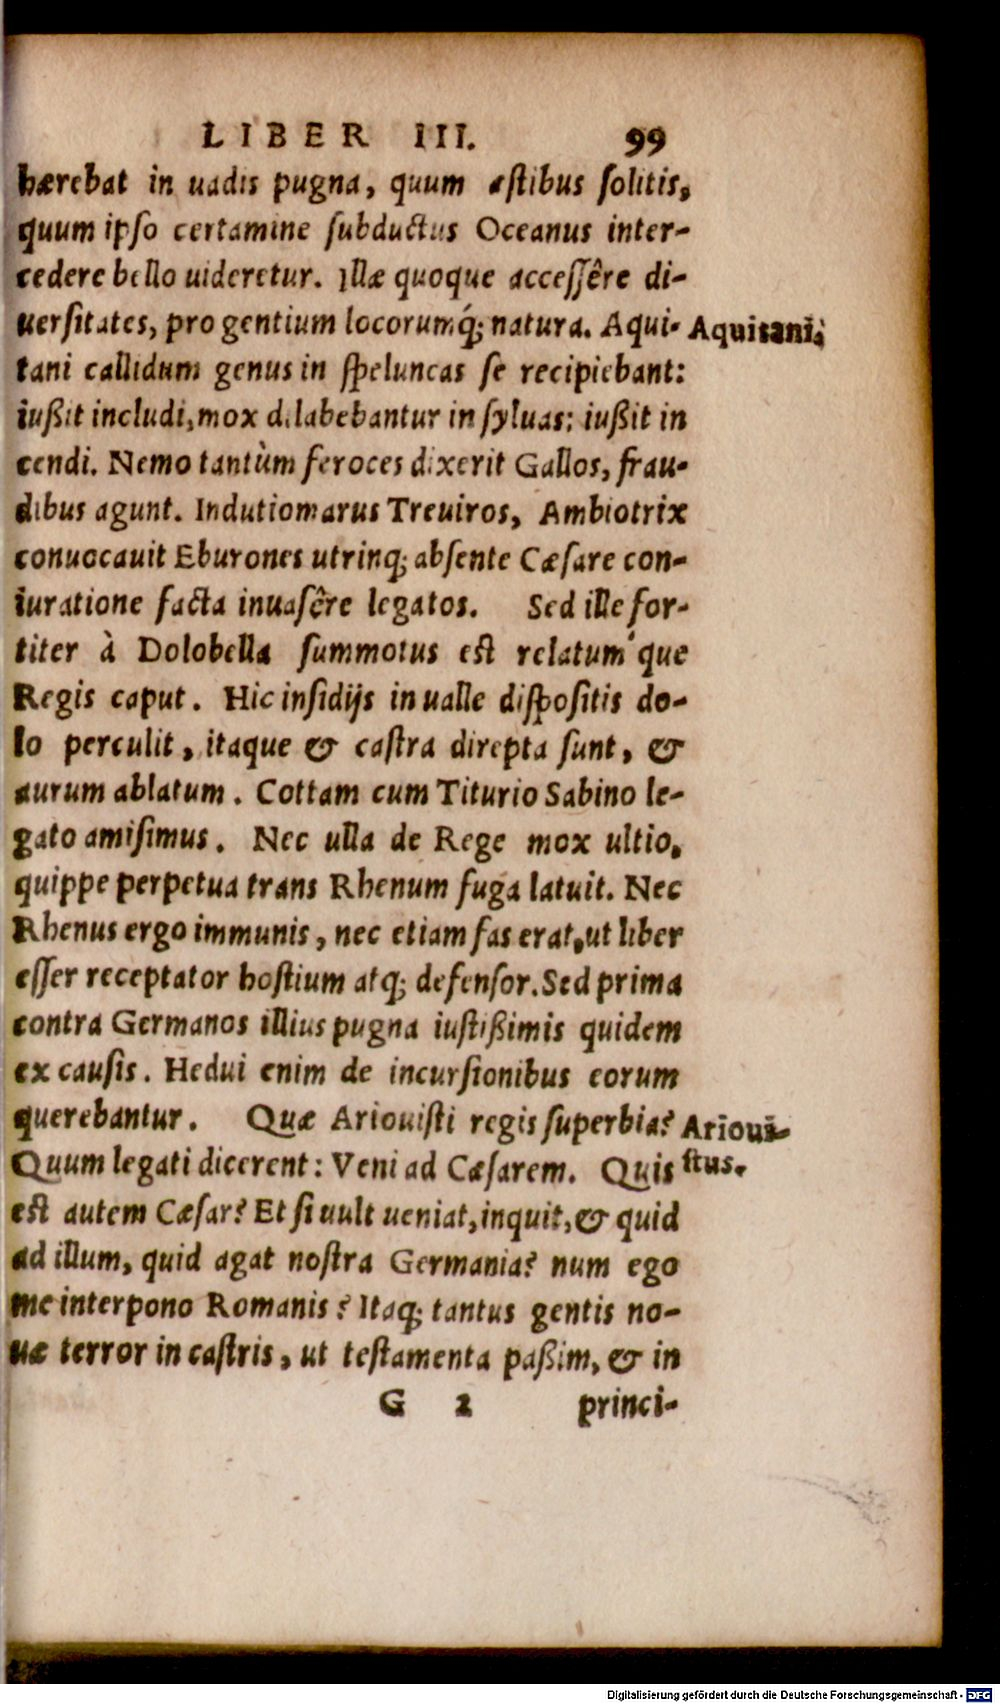 LIBER III. 99
hærebat in uadis pugna, quum æstibus solitis,
quum ipso certamine subductus Oceanus inter-
cedere bello uideretur. Illæ quoque accessêre di-
uersitates, pro gentium locorumq́; natura. Aqui- Aquitani.
tani callidum genus in speluncas se recipiebant:
iußit includi, mox dilabebantur in syluas: iußit in
cendi. Nemo tantùm feroces dixerit Gallos, frau-
dibus agunt. Indutiomarus Treuiros, Ambiotrix
conuocauit Eburones utrinq; absente Cæsare con-
iuratione facta inuasêre legatos. Sed ille for-
titer à Dolobella summotus est relatuḿque
Regis caput. Hic insidijs in ualle dispositis do-
lo perculit, itaque & castra direpta sunt, &
aurum ablatum. Cottam cum Titurio Sabino le-
gato amisimus. Nec ulla de Rege mox ultio,
quippe perpetua trans Rhenum fuga latuit. Nec
Rhenus ergo immunis, nec etiam fas erat, ut liber
esser receptator hostium atq; defensor. Sed prima
contra Germanos illius pugna iustißimis quidem
ex causis. Hedui enim de incursionibus eorum
querebantur. Quæ Ariouisti regis superbia? Arioui-
Quum legati dicerent: Veni ad Cæsarem. Quis stus.
est autem Cæsar? Et si uult ueniat, inquit, & quid
ad illum, quid agat nostra Germania? num ego
me interpono Romanis? Itaq; tantus gentis no-
uæ terror in castris, ut testamenta paßim, & in
G 2 princi-
Digitalisierung gefördert durch die Deutsche Forschungsgemeinschaft - DFG